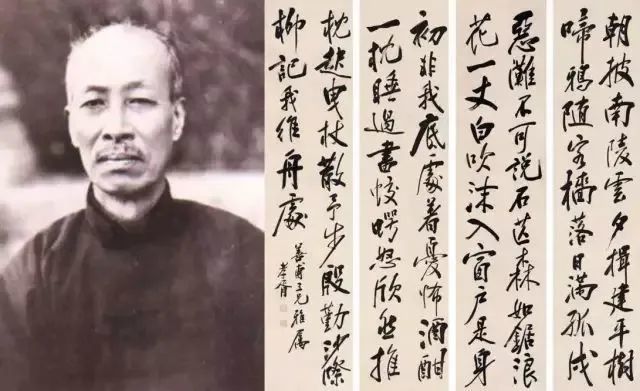 朝披南陵雲夕揖建平樹
啼鴉隨客檣落日滿孤戍
惡灘不可說石芒森如鋸浪
花一丈白吹沫入窗户是身
初非我底處著憂怖酒酣
一枕睡過盡蛟鰐怒欣然推
枕起曳杖散予步殷勤沙際
柳記我維舟處
兄雅屬
孝胥